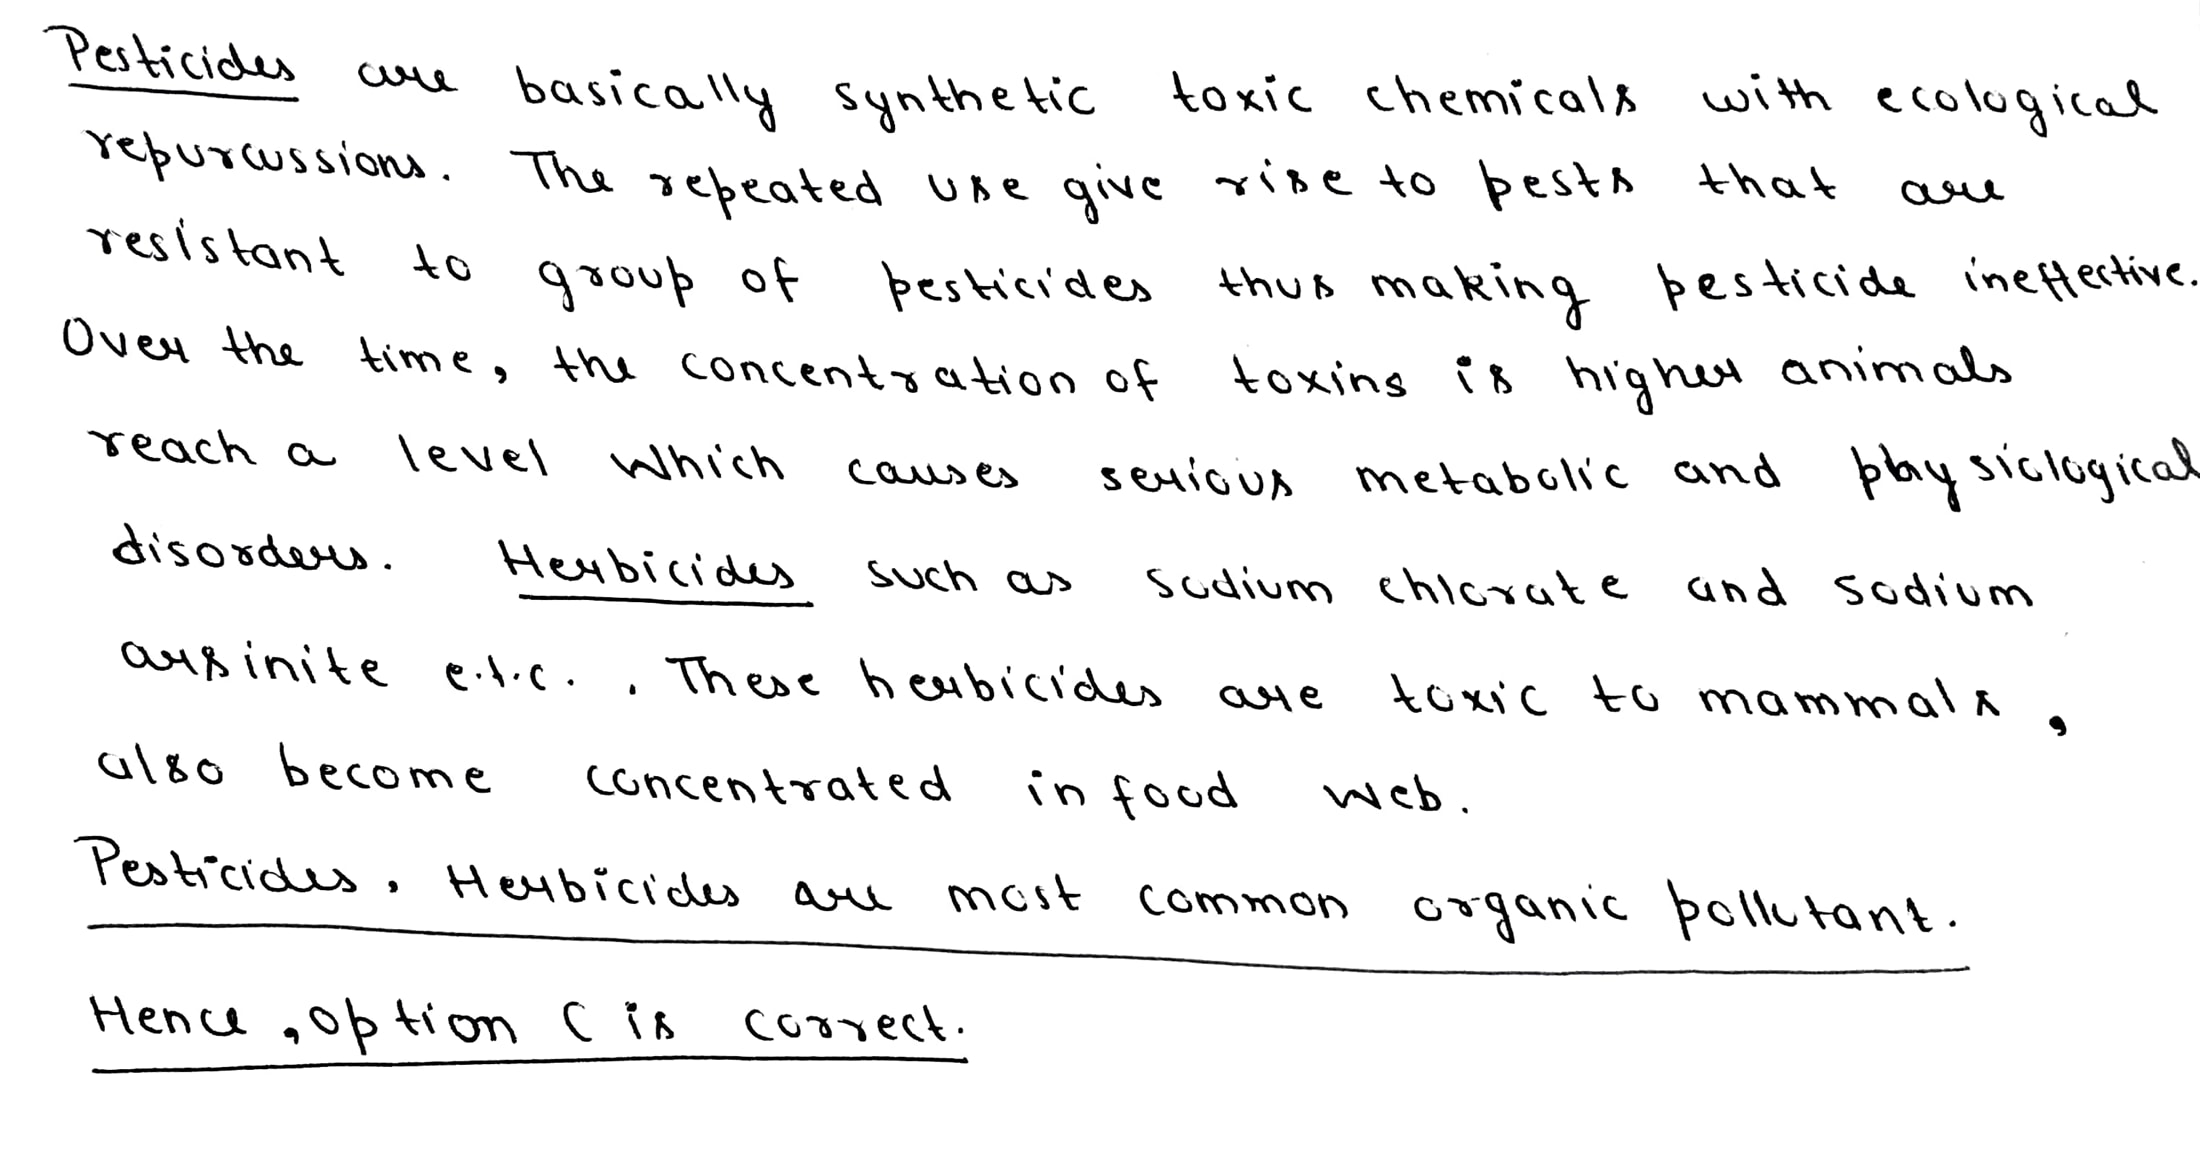 Pesticides are basically synthetic toxic chemicals with ecological
repurcussions. The repeated use give rise to pests that are
resistant to group of pesticides thus making pesticide ineffective.
Over the time, the concentration of toxins is higher animals
reach a level which causes serious metabolic and physiological
disorders. Herbicides such as sodium chlorate and sodium
arsinite e.t.c. . These herbicides are toxic to mammals,
also become concentrated in food web.
Pesticides, Herbicides are most common organic pollutant.
Hence, option C is correct.